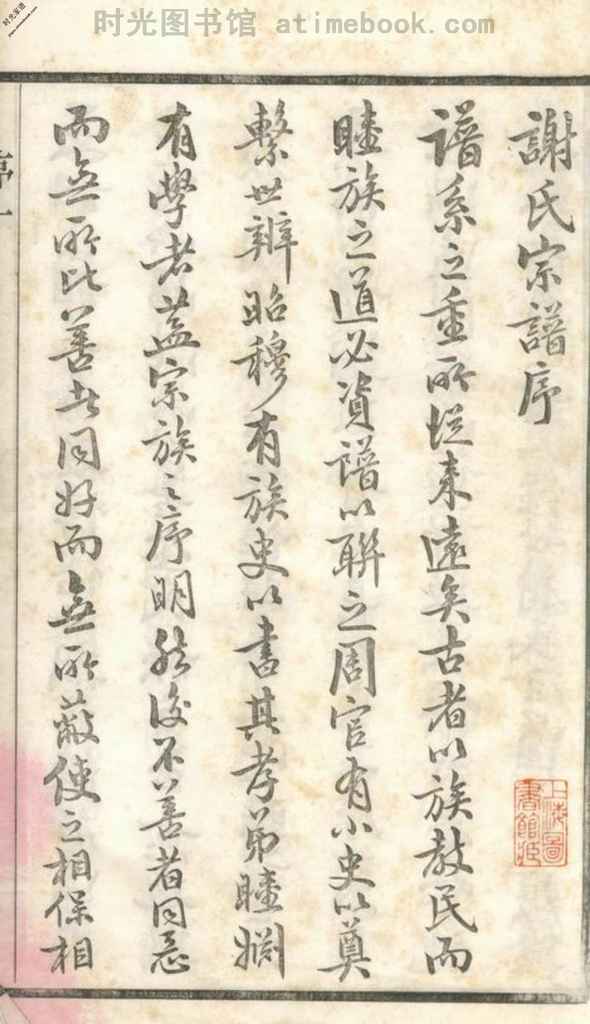 时光图书馆 atimebook.com
謝氏宗譜序
譜系之重所從来遠矣古者以族教民而
睦族之道必資譜以聯之周官有小史以奠
繫世辨昭穆有族史以書其孝弟睦姻
有學者蓋宗族之序明然後不善者同惡
而無所比善者同好而無所蔽使之相保相
序一
上海圖書館